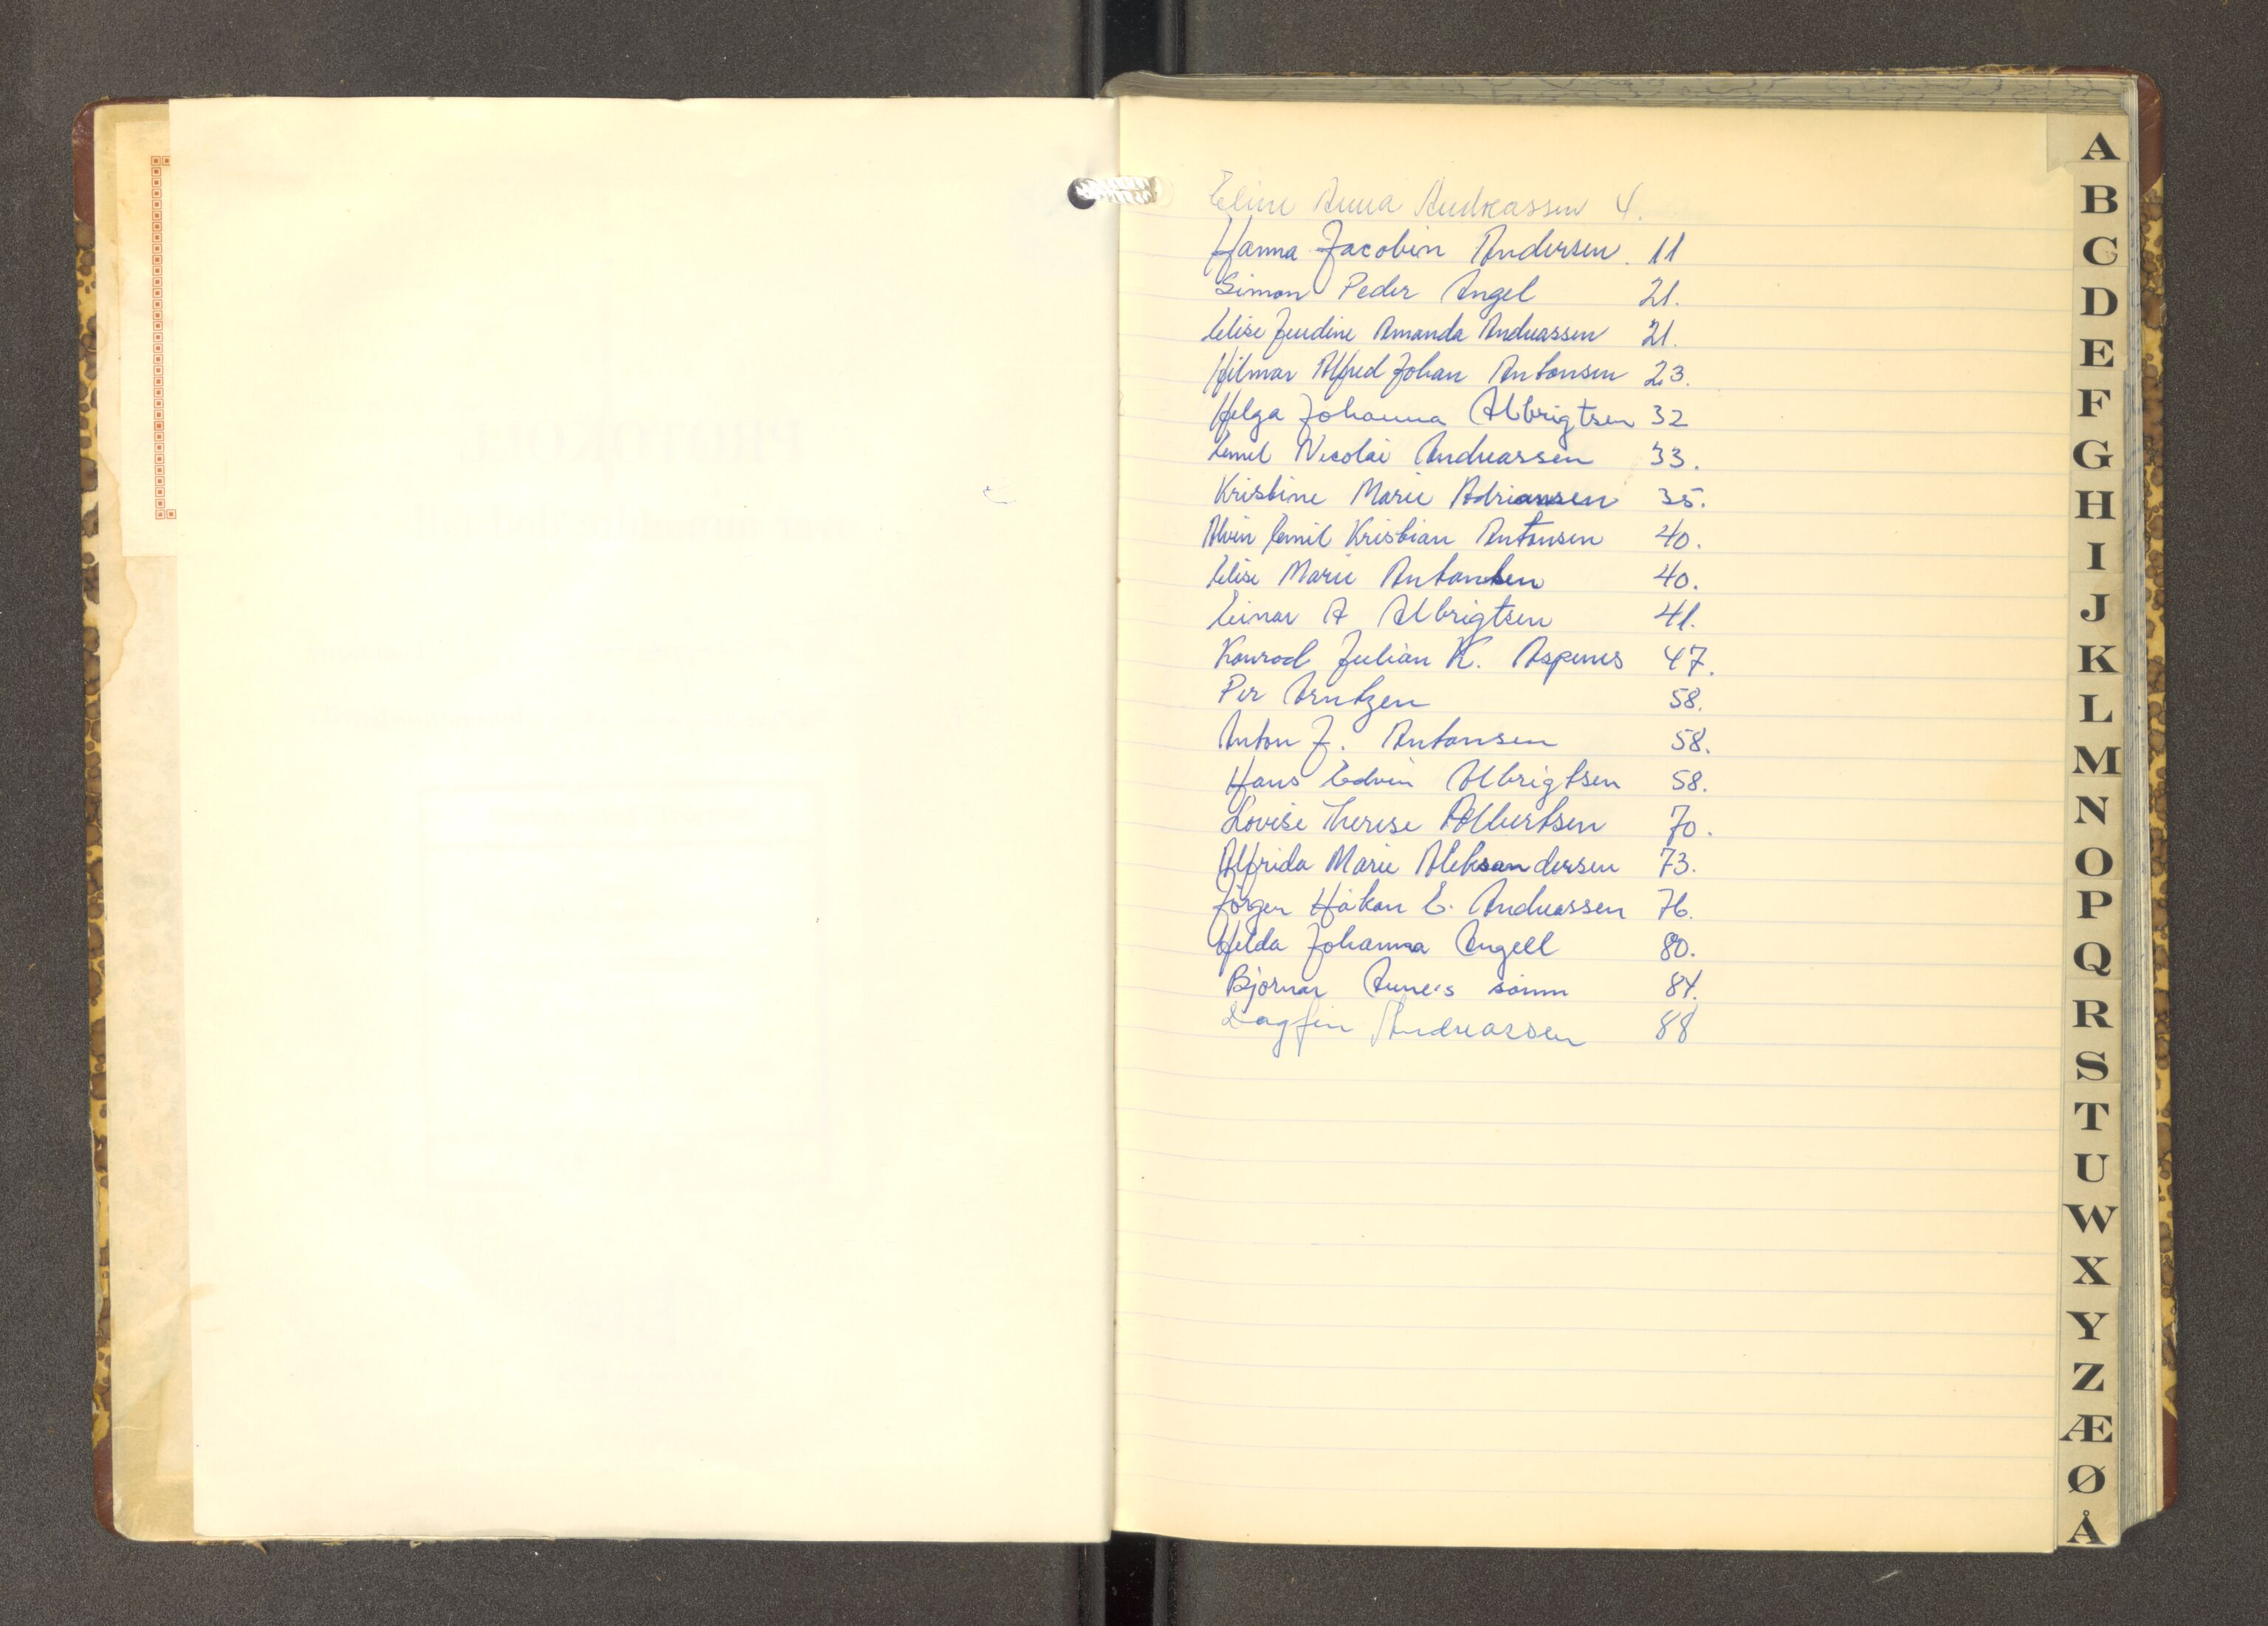 Eline Anna Andreassen 4.
Hanna Jacobin Andersen. 11
Simon Peder Angel 21.
Elise Amanda Andreassen 21.
Hilmar Alfred Johan Antonsen 23.
Helga Johanna Albrigtsen 32
Emil Nicolai Andreassen 33.
Kristine Marie Adriansen 35.
Alvin Emil Kristian Antonsen 40.
Elise Marie Antonsen 40.
Einar A Albrigtsen 41.
Konrad Julian K. Aspenes 47.
Per Arntzen 58.
Anton J. Antonsen 58.
Hans Edvin Albrigtsen 58.
Lovise Therese Albertsen 70.
Alfrida Marie Aleksandersen 73.
Jörgen Håkon E. Andreassen 76.
Hilda Johanna Angell 80.
Bjørnar 84.
Dagfin Andreassen 88
A
B
C
D
E
F
G
H
I
J
K
L
M
N
O
P
Q
R
S
T
U
W
X
Y
Z
Æ
Ø
Å